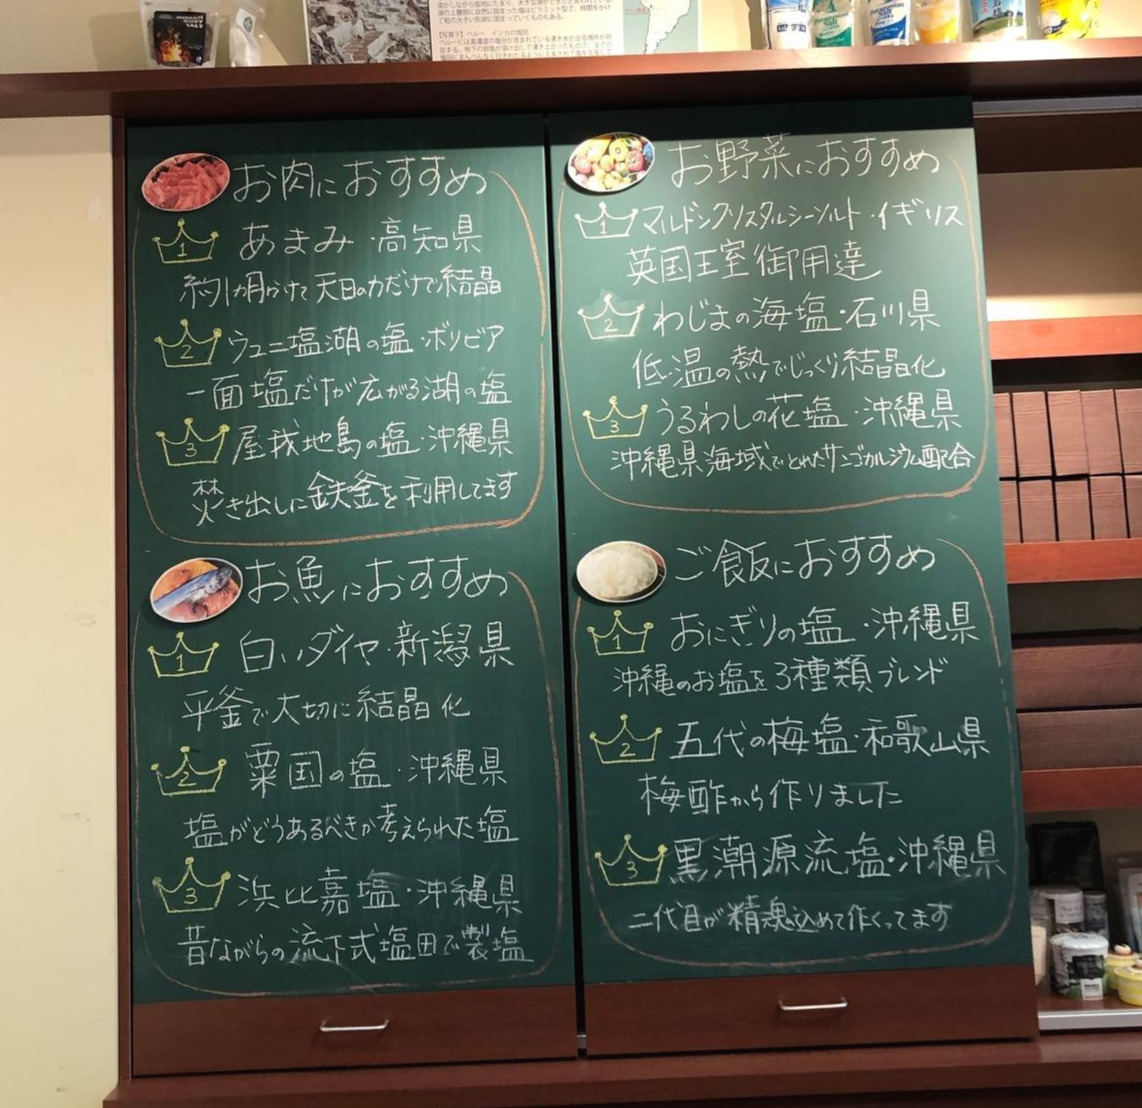 INDIAN
SALT
【写真下】ペルー インカの塩田
お肉におすすめ
1 あまみ・高知県
約1カ月かけて天日の力だけで結晶
2 ウユニ塩湖の塩・ボリビア
一面塩だけが広がる湖の塩
3 屋我地島の塩・沖縄県
焚き出しに鉄釜を利用してます
お魚におすすめ
1 白いダイヤ・新潟県
平釜で大切に結晶化
2 粟国の塩・沖縄県
塩がどうあるべきか考えられた塩
3 浜比嘉塩・沖縄県
昔ながらの流下式塩田で製塩
お野菜におすすめ
1 マルドンクリスタルシーソルト・イギリス
英国王室御用達
2 わじまの海塩・石川県
低温の熱でじっくり結晶化
3 うるわしの花塩・沖縄県
沖縄県海域でとれたサンゴカルシウム配合
ご飯におすすめ
1 おにぎりの塩・沖縄県
沖縄のお塩を3種類ブレンド
2 五代の梅塩・和歌山県
梅酢から作りました
3 黒潮源流塩・沖縄県
二代目が精魂込めて作くってます